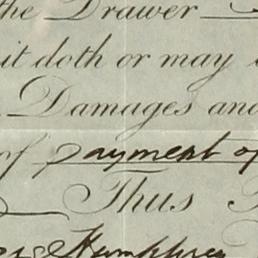 the Drawer
it doth or may
Damages and
of payment of
Thus
Humphrey